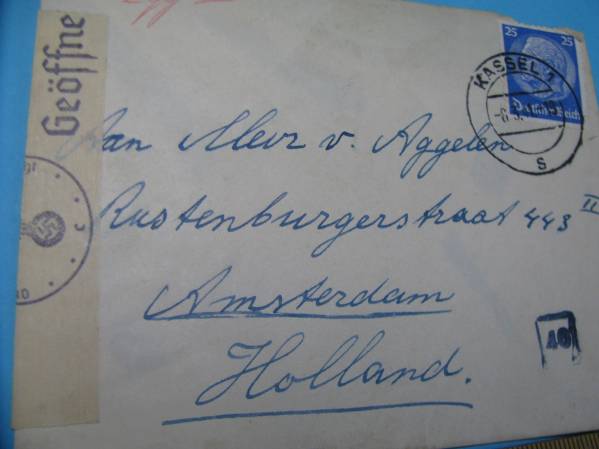 Geöffne
25 25
Deutsches Reich
KASSEL 1
-6.3.
s
Aan Mevr v. Aggelen
Rustenburgerstraat 443 II
Amsterdam
Holland.
40